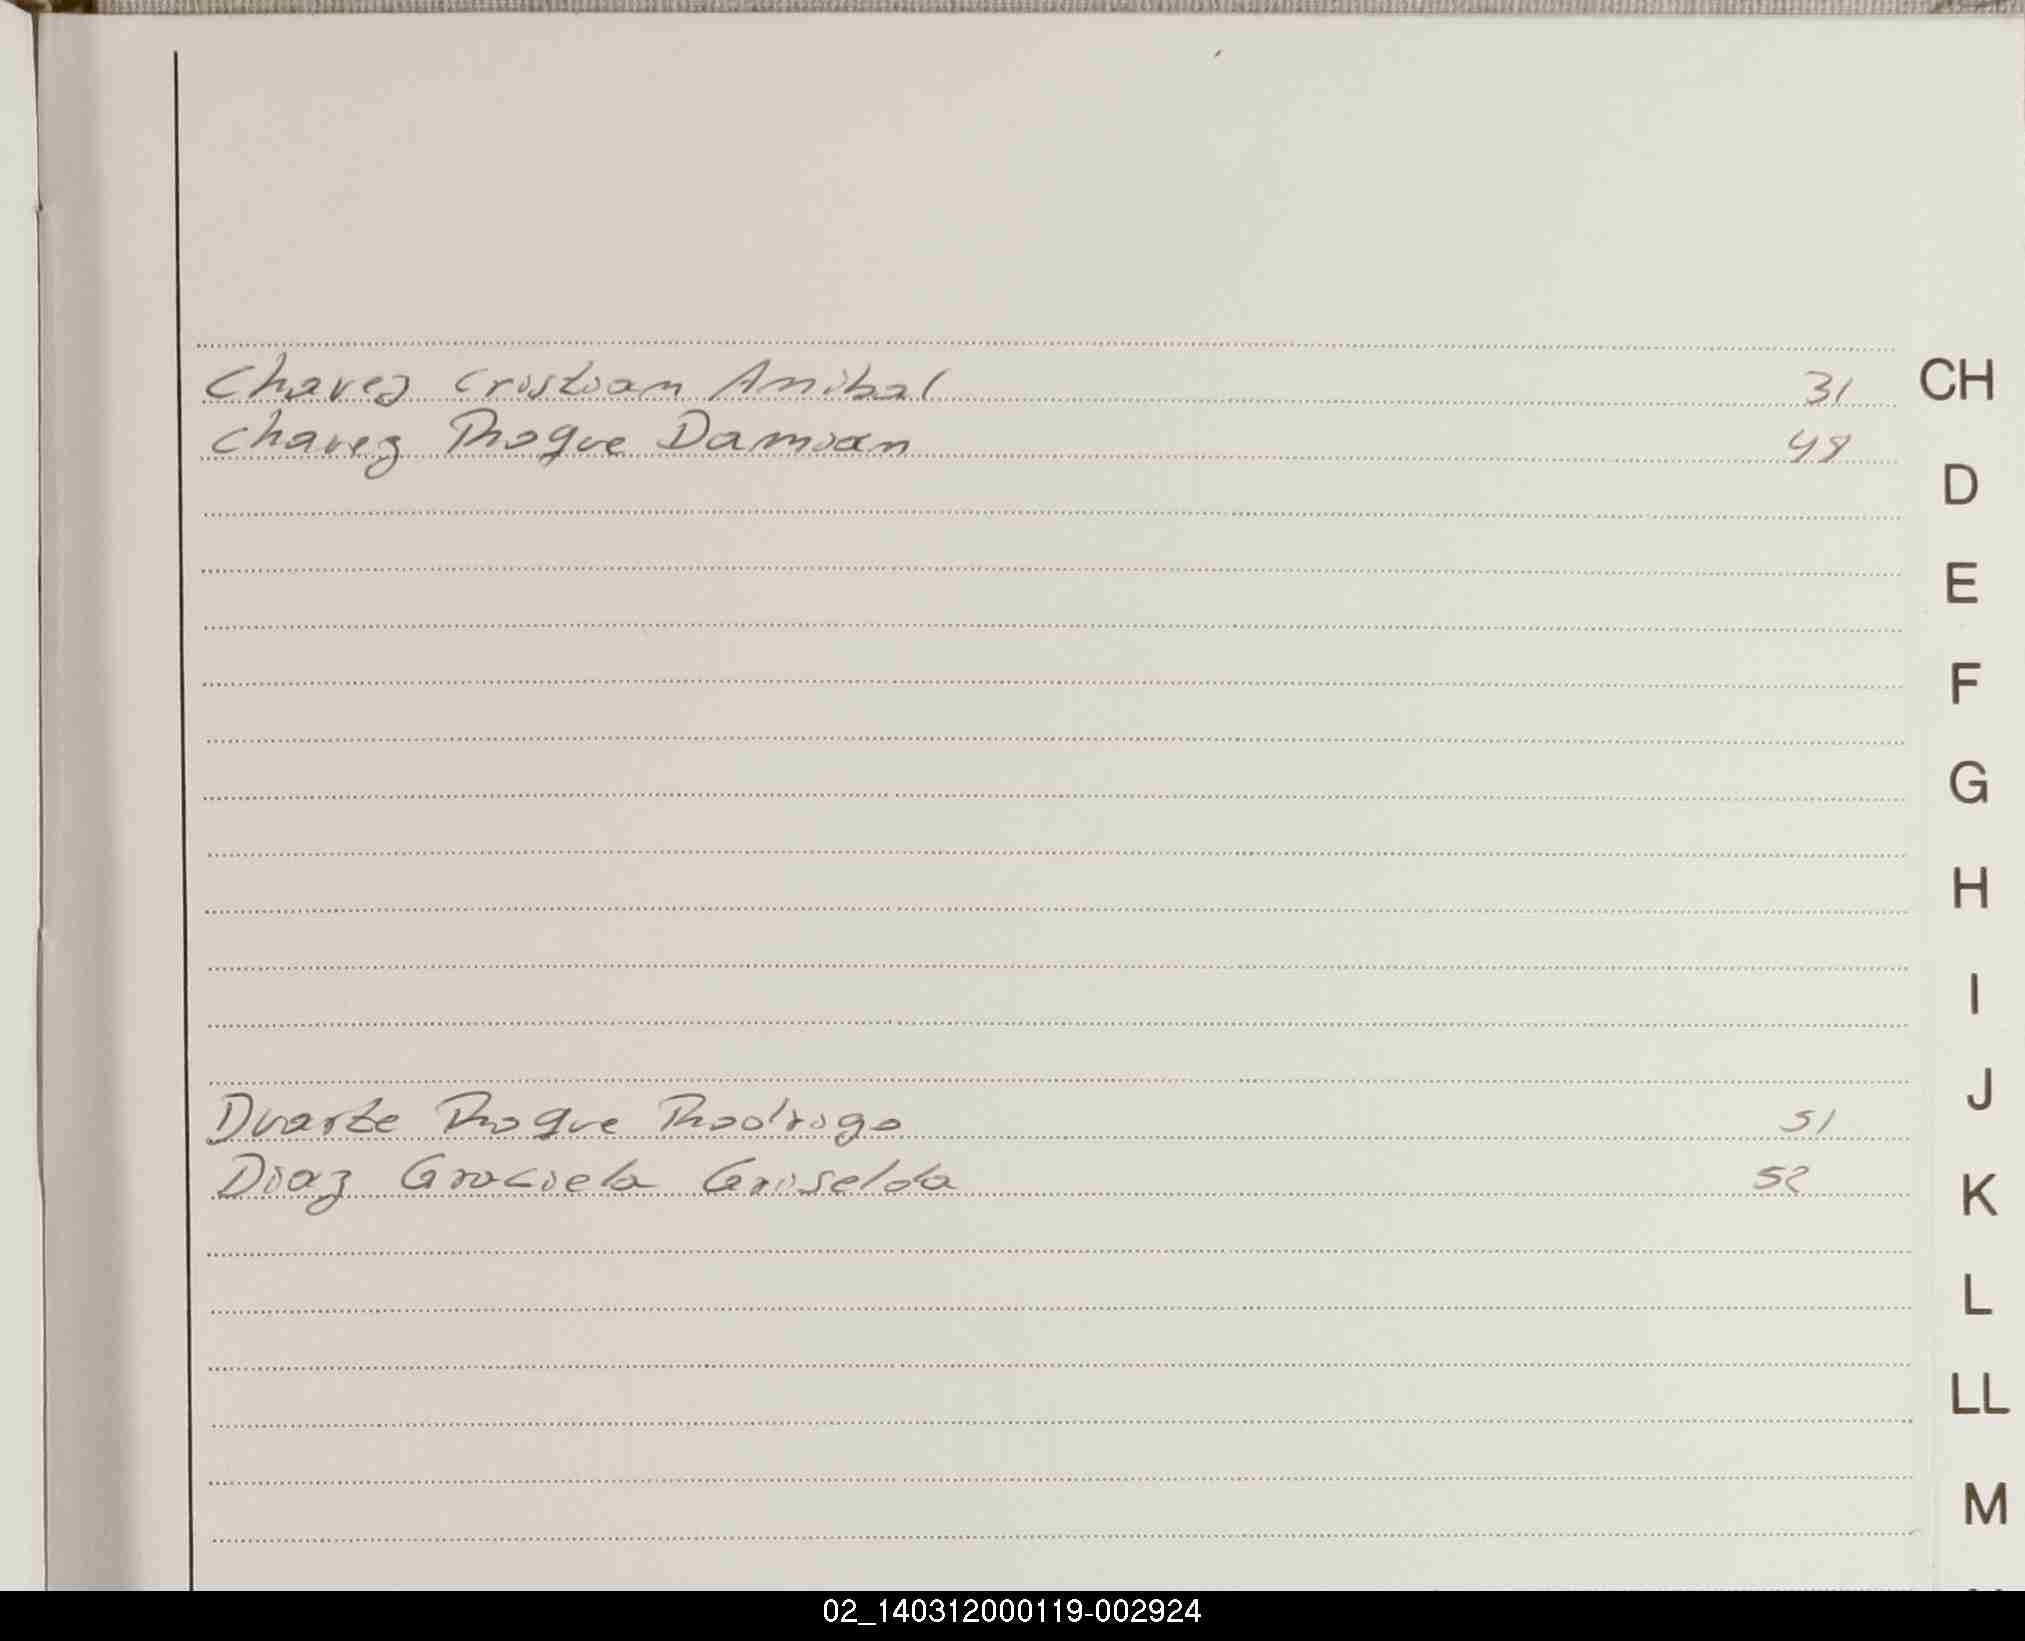 Chavez Cristian Anibal 31 CH
Chavez Rroque Damian 49
D
E
F
G
H
I
J
Duarte Rroque Rrodrigo 51
Diaz Graciela Griselda 52
K
L
LL
M
02_140312000119-002924